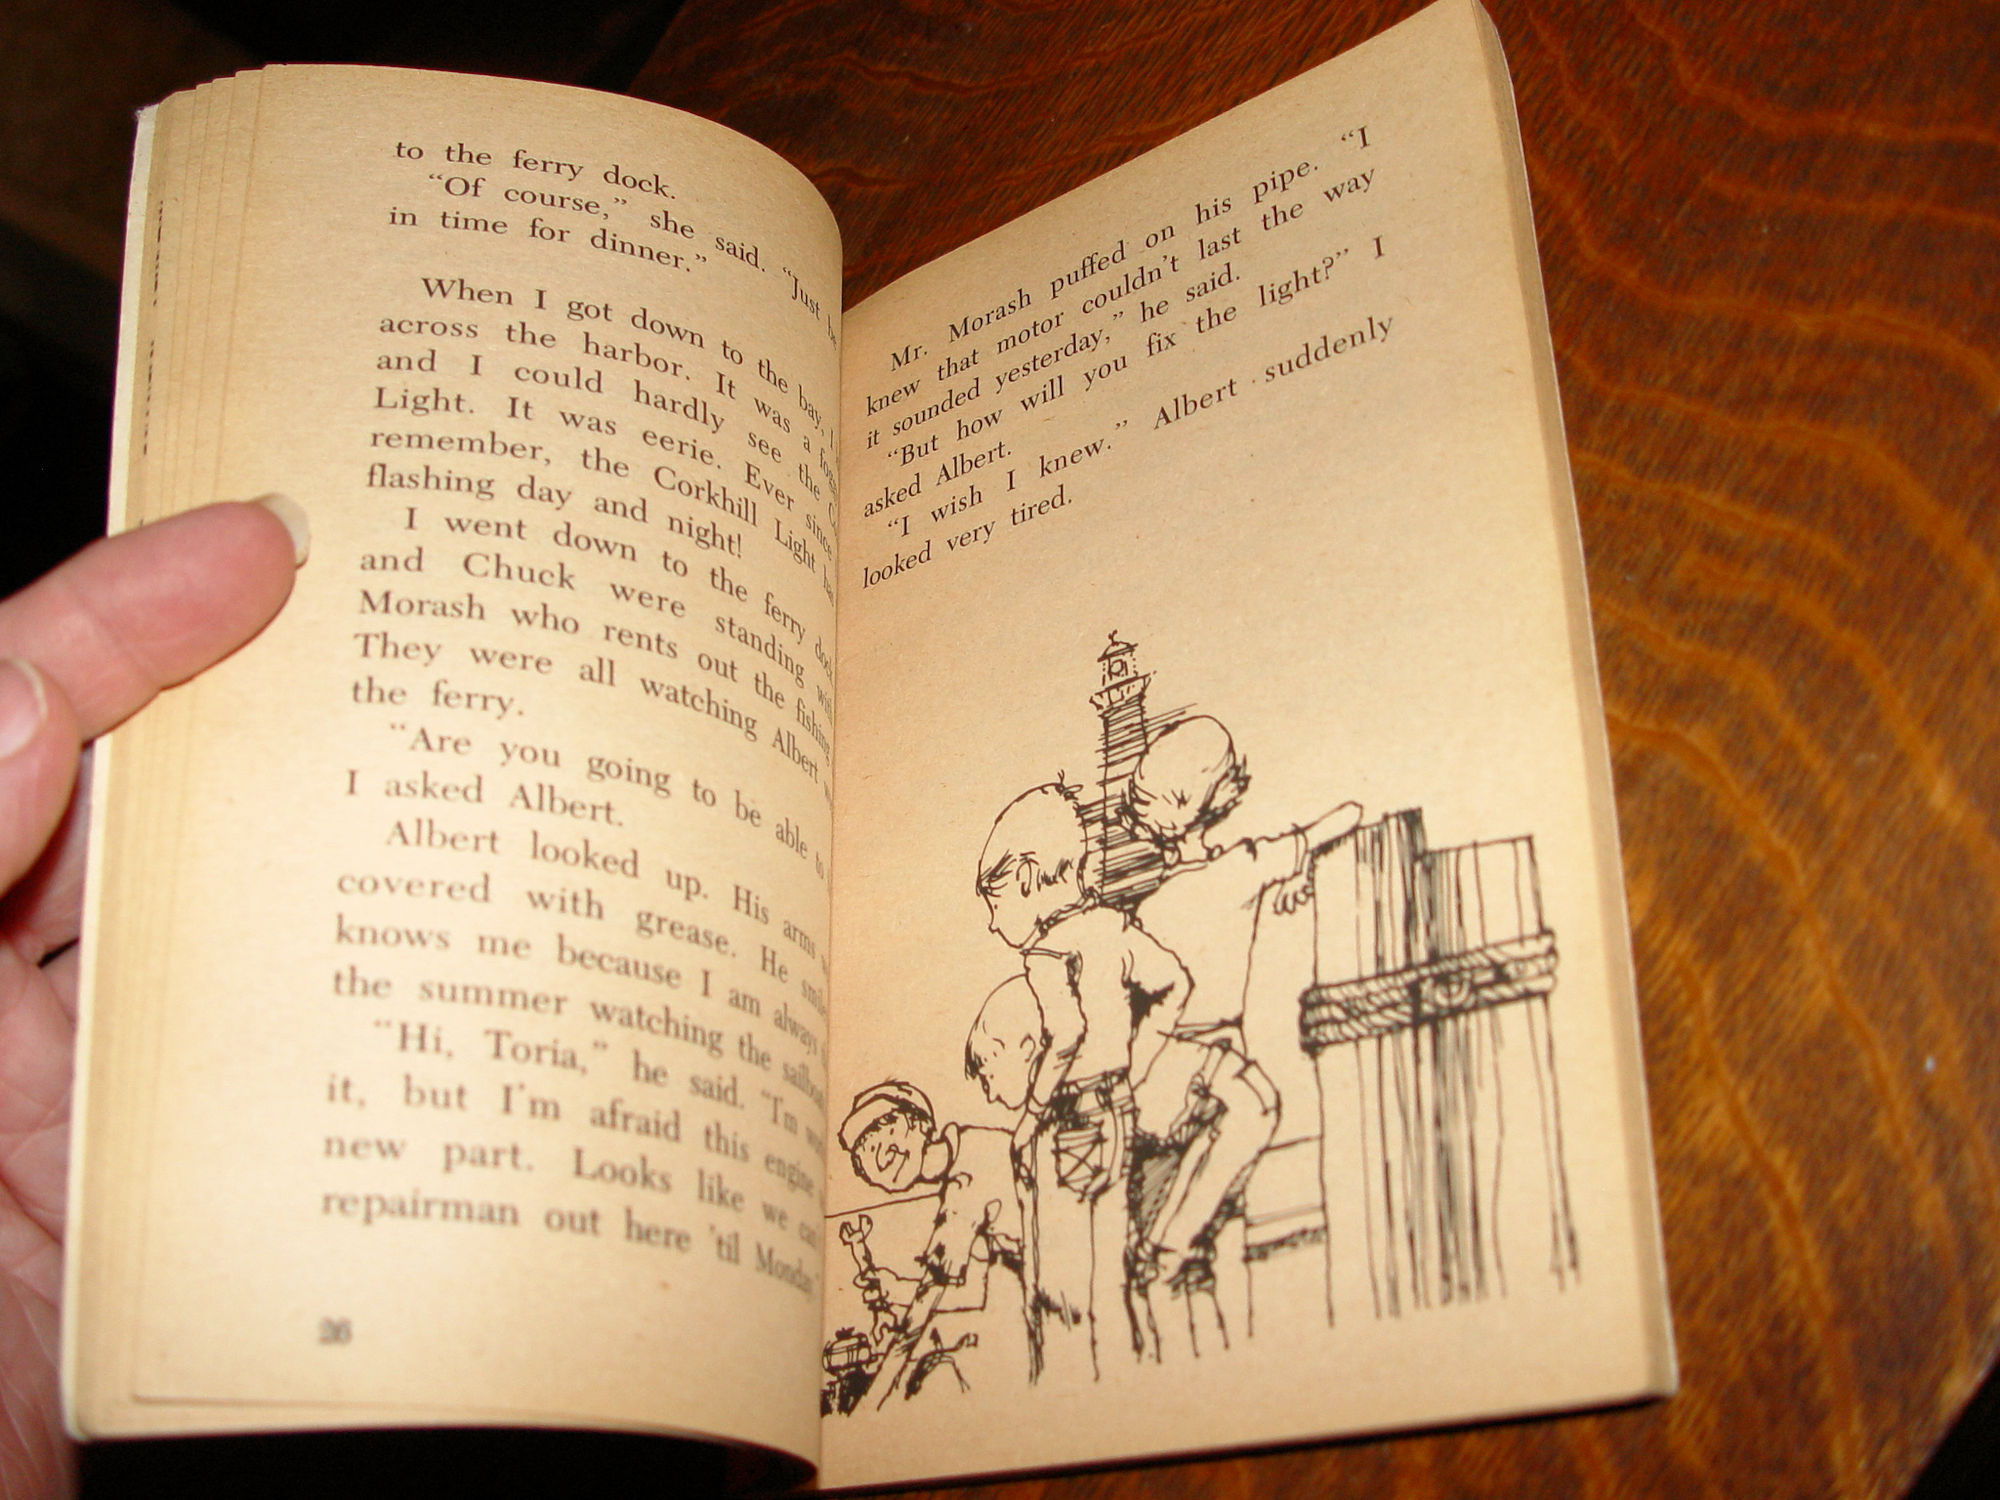 to the ferry dock.
"Of course," she said. "Just be
in time for dinner."
When I got down to the bay, I
across the harbor. It was a foggy
and I could hardly see the
Light. It was eerie. Ever since
remember, the Corkhill Light had
flashing day and night!
I went down to the ferry dock
and Chuck were standing with
Morash who rents out the fishing
They were all watching Albert
the ferry.
"Are you going to be able to
I asked Albert.
Albert looked up. His arms
covered with grease. He
knows me because I am always
the summer watching the
"Hi, Toria," he said. "I'm
it, but I'm afraid this engine
new part. Looks like we can
repairman out here 'til Monday
26
Mr. Morash puffed on his pipe. "I
knew that motor couldn't last the way
it sounded yesterday," he said.
"But how will you fix the light?" I
asked Albert.
"I wish I knew." Albert suddenly
looked very tired.